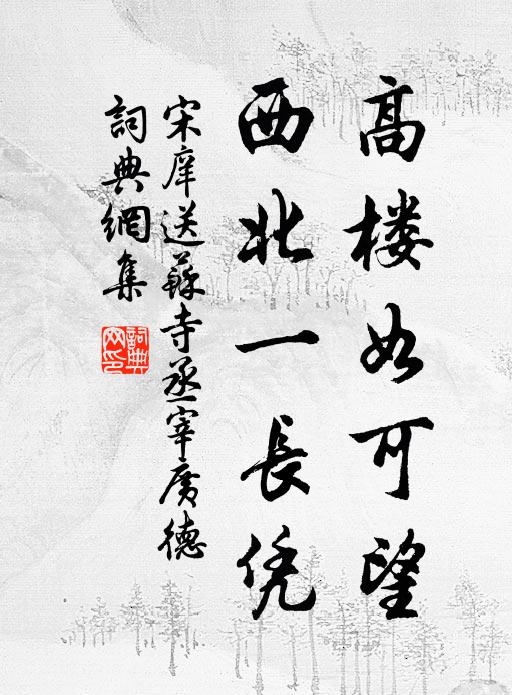 高楼如可望
西北一長凭
宋庠送蘇寺丞宰廣德
詞典網集
詞典网印